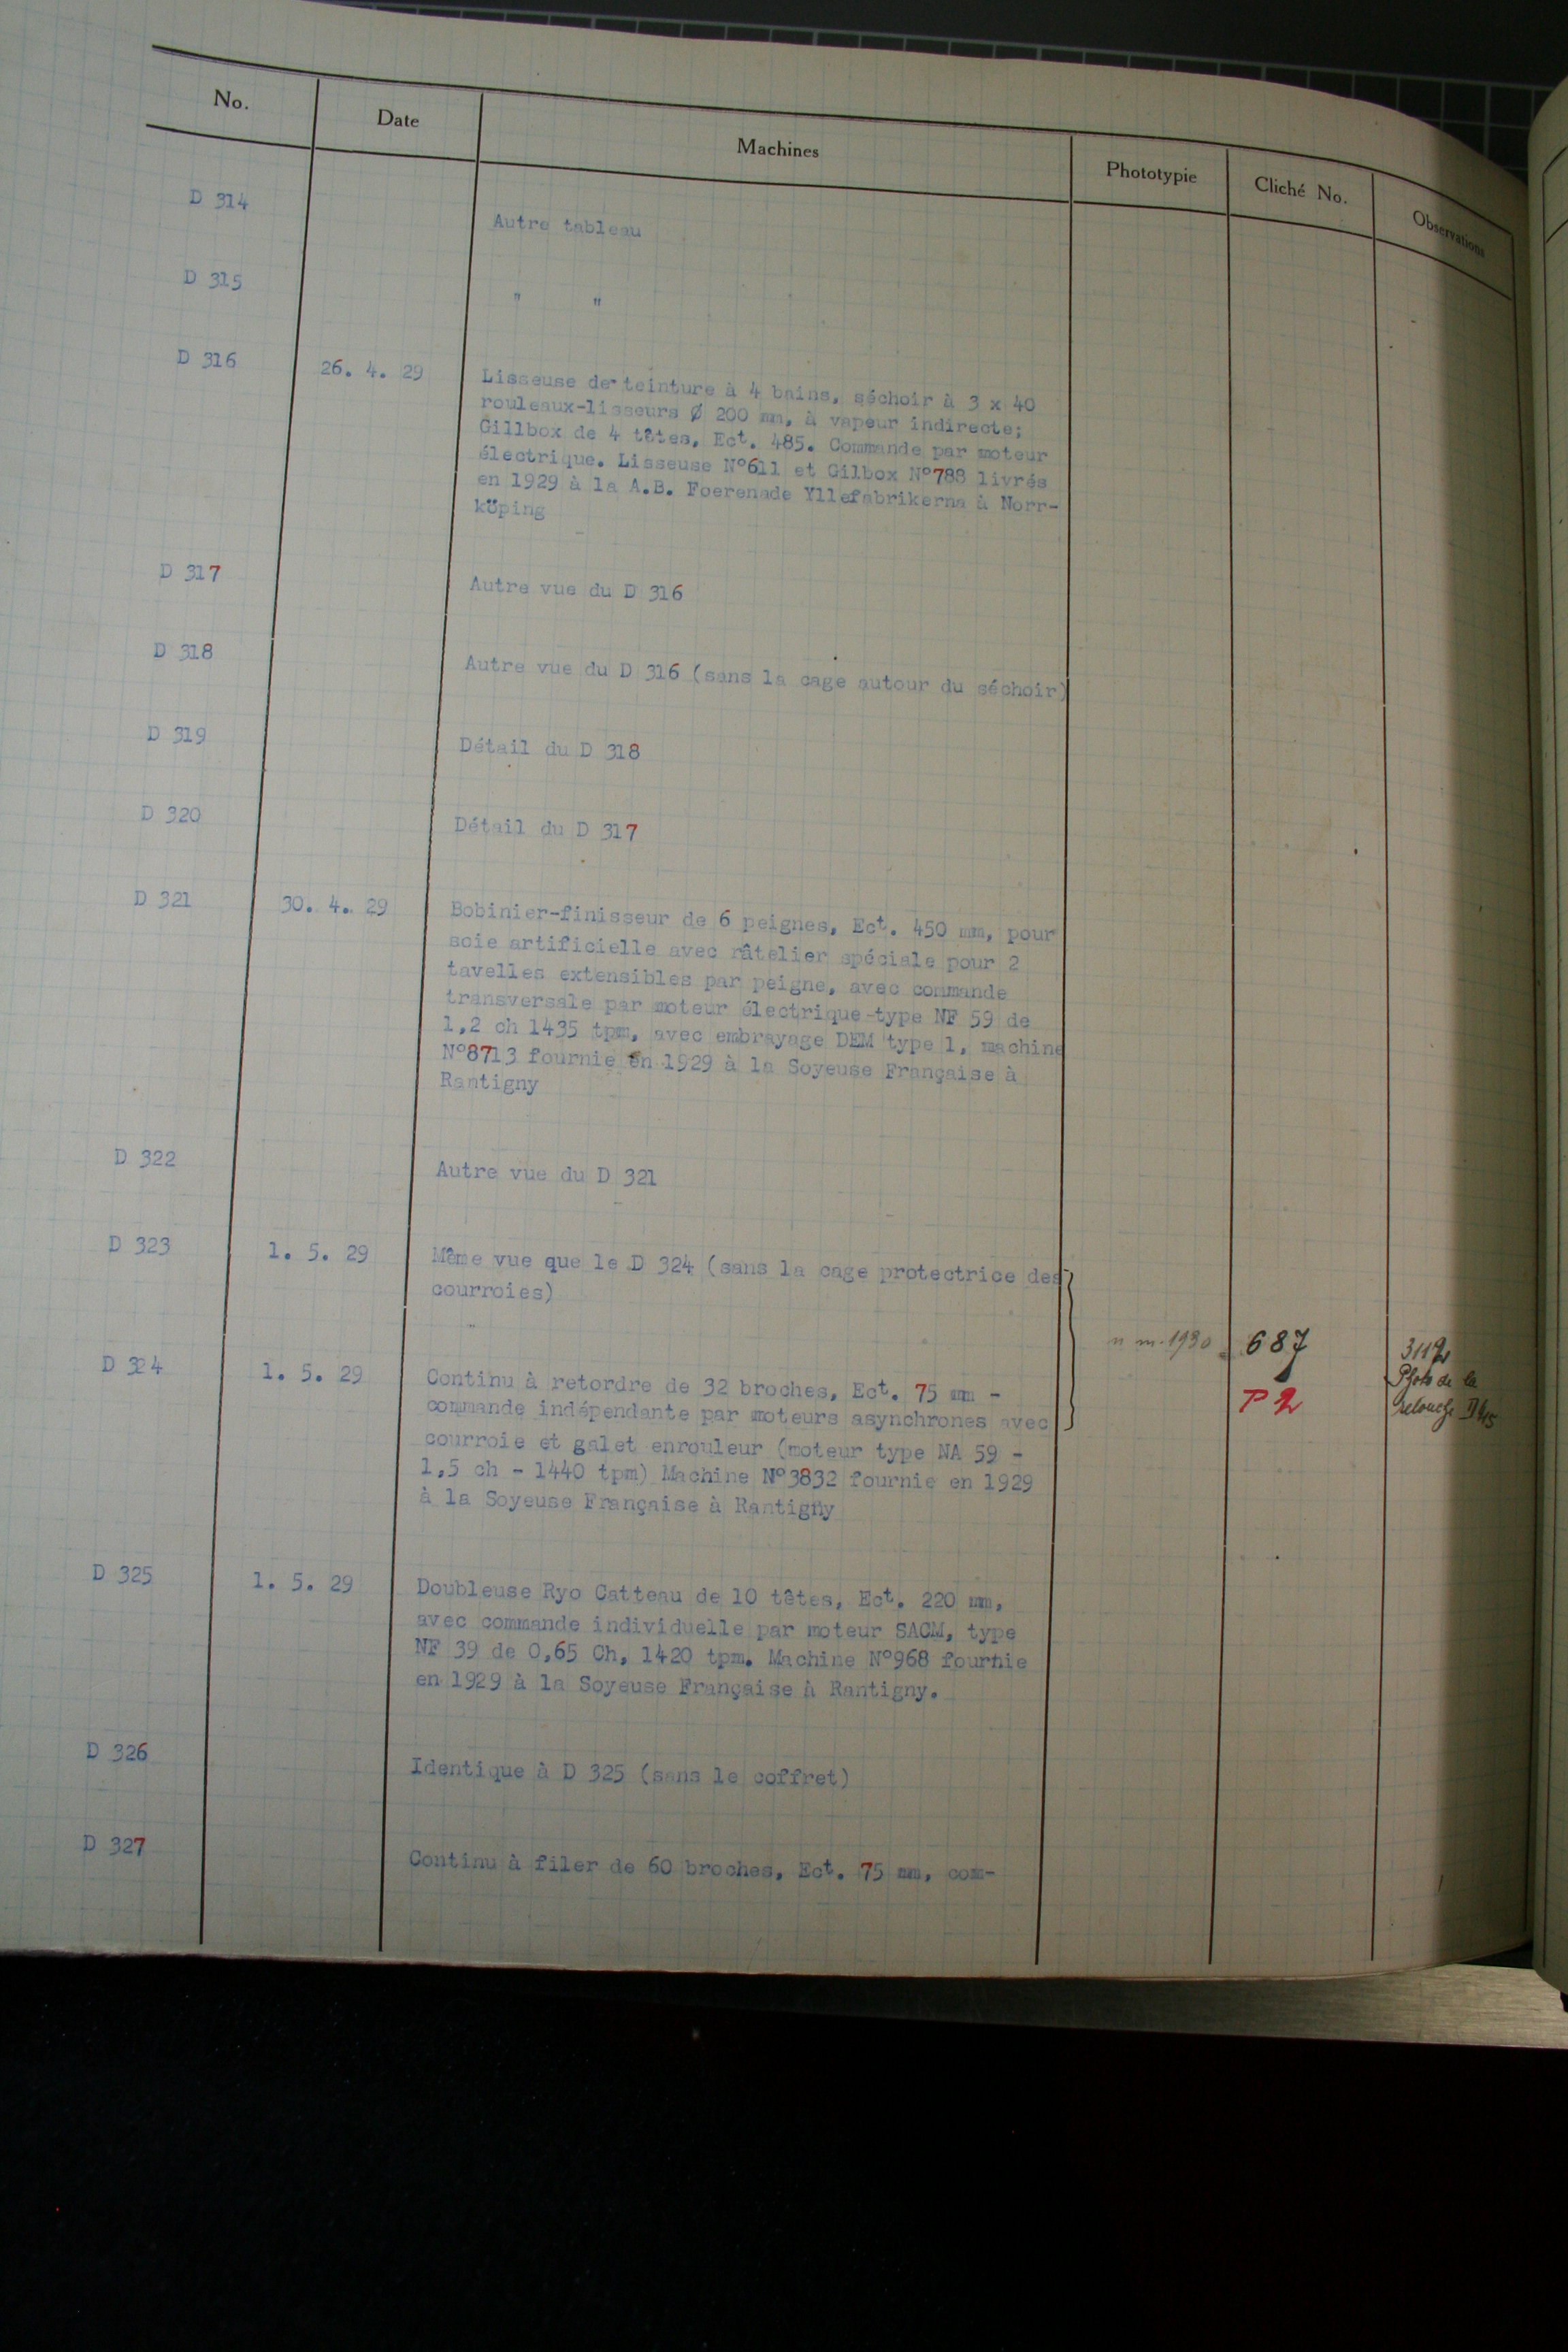 No. Date Machines Phototypie Cliché No. Observations
D 314 Autre tableau
D 315 " "
D 316 26. 4. 29 Lisseuse de teinture à 4 bains, séchoir à 3 x 40
rouleaux-lisseurs Ø 200 mm, à vapeur indirecte;
Gillbox de 4 têtes, Ect. 485. Commande par moteur
électrique. Lisseuse N°611 et Gilbox N°788 livrés
en 1929 à la A.B. Foerenade Yllefabrikerna à Norr-
köping
D 317 Autre vue du D 316
D 318 Autre vue du D 316 (sans la cage autour du séchoir)
D 319 Détail du D 318
D 320 Détail du D 317
D 321 30. 4. 29 Bobinier-finisseur de 6 peignes, Ect. 450 mm, pour
soie artificielle avec râtelier spéciale pour 2
tavelles extensibles par peigne, avec commande
transversale par moteur électrique-type NF 59 de
1,2 ch 1435 tpm, avec embrayage DEM type 1, machine
N°8713 fournie en 1929 à la Soyeuse Française à
Rantigny
D 322 Autre vue du D 321
D 323 1. 5. 29 Même vue que le D 324 (sans la cage protectrice des
courroies)
1930 687 3112
D 324 1. 5. 29 Continu à retordre de 32 broches, Ect. 75 mm - P 2 Photo de la
commande indépendante par moteurs asynchrones avec retouche
courroie et galet enrouleur (moteur type NA 59 -
1,5 ch - 1440 tpm) Machine N°3832 fournie en 1929
à la Soyeuse Française à Rantigny
D 325 1. 5. 29 Doubleuse Ryo Catteau de 10 têtes, Ect. 220 mm,
avec commande individuelle par moteur SACM, type
NF 39 de 0,65 Ch, 1420 tpm. Machine N°968 fournie
en 1929 à la Soyeuse Française à Rantigny.
D 326 Identique à D 325 (sans le coffret)
D 327 Continu à filer de 60 broches, Ect. 75 mm, com-